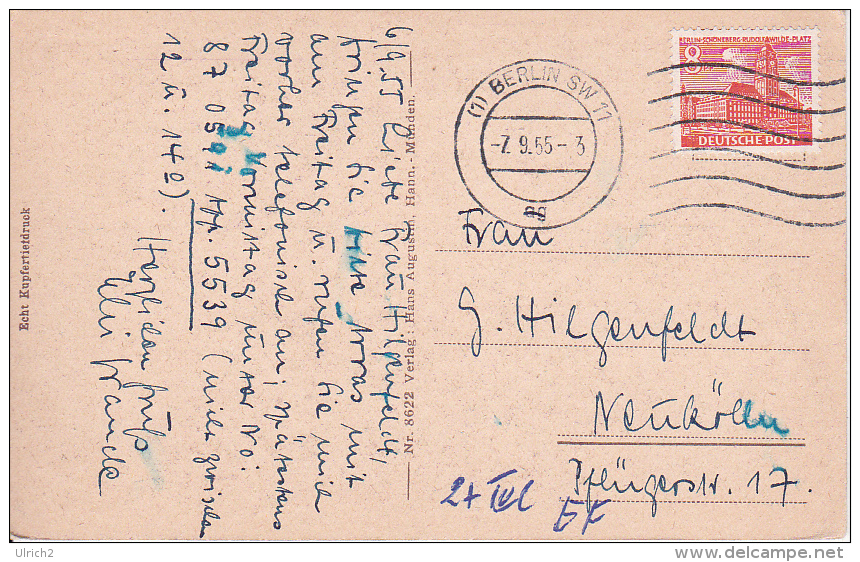 6/9.55 Liebe Frau Hilgenfeldt,
bringen Sie bitte was mit
am Freitag u. rufen Sie mich
vorher telefonisch an, spätestens
Freitag Vormittag unter No:
87 0591 App. 5539 (nicht zwischen
12 u. 14°).
Herzlichen Gruß
Echt Kupfertiefdruck
Nr. 8622 Verlag: Hans Augustin, Hann.-Münden.
(1) BERLIN SW 11
-7. 9.55-3
ag
BERLIN-SCHÖNEBERG·RUDOLF-WILDE-PLATZ
8
DEUTSCHE POST
Frau
G. Hilgenfeldt
Neukölln
Pflügerstr. 17.
Ulrich2
www.delcampe.net